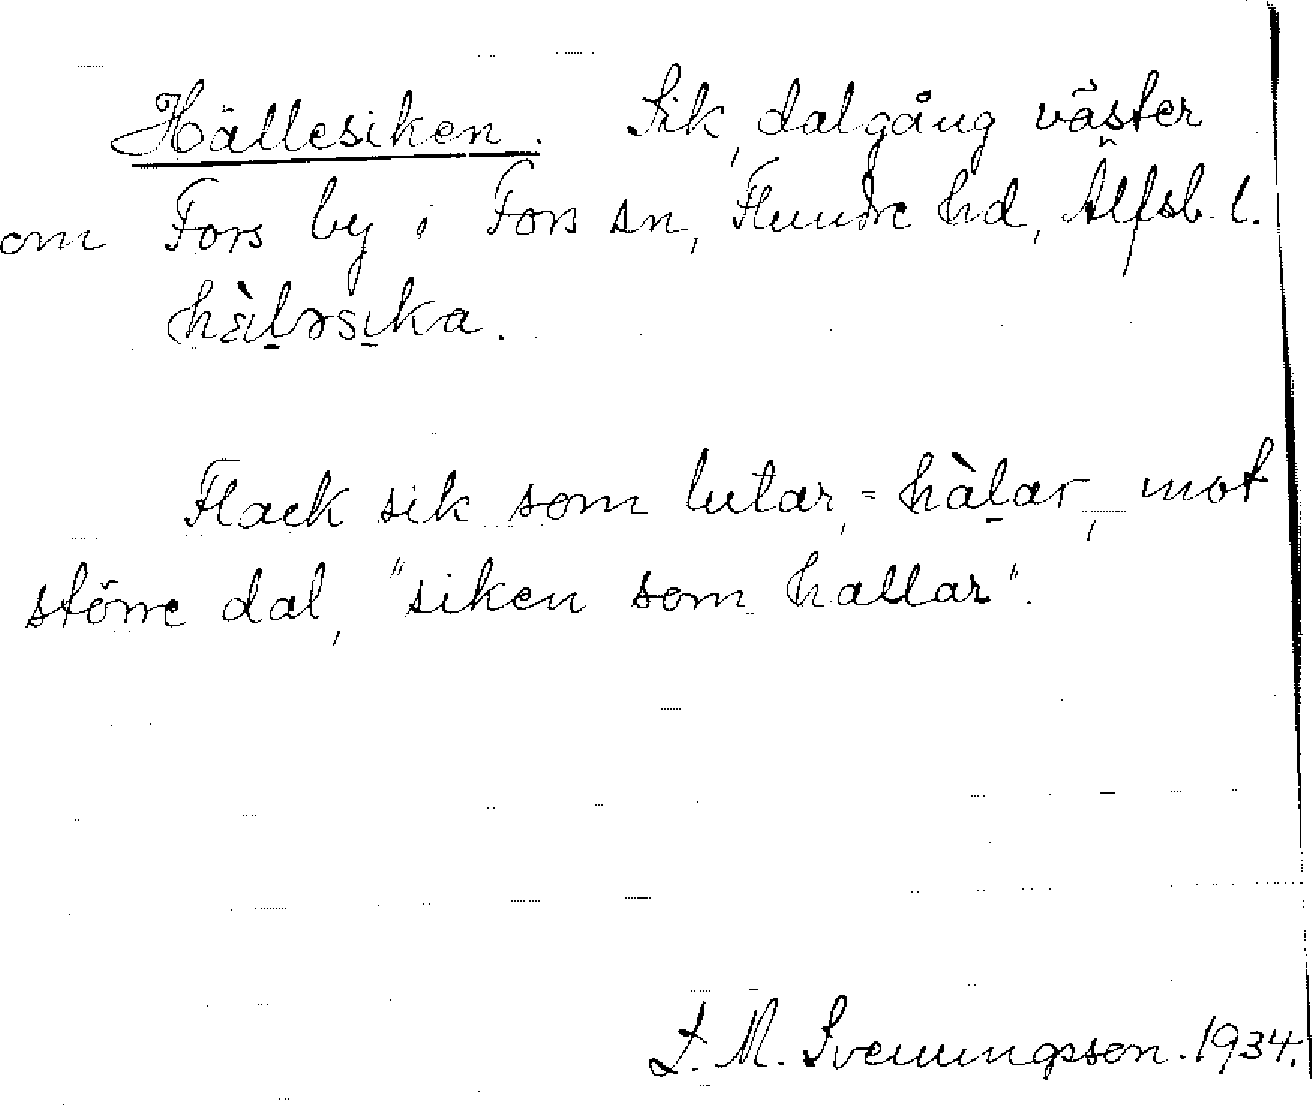 Hällesiken. Sik, dalgång väster
om Fors by i Fors sn, Flundre hd, Älfsb. l.
hàl̠əsi̠ka.
Flack sik som lutar, = hàl̠ar, mot
större dal, "siken som hallar".
J. M. Svenningsson. 1934.